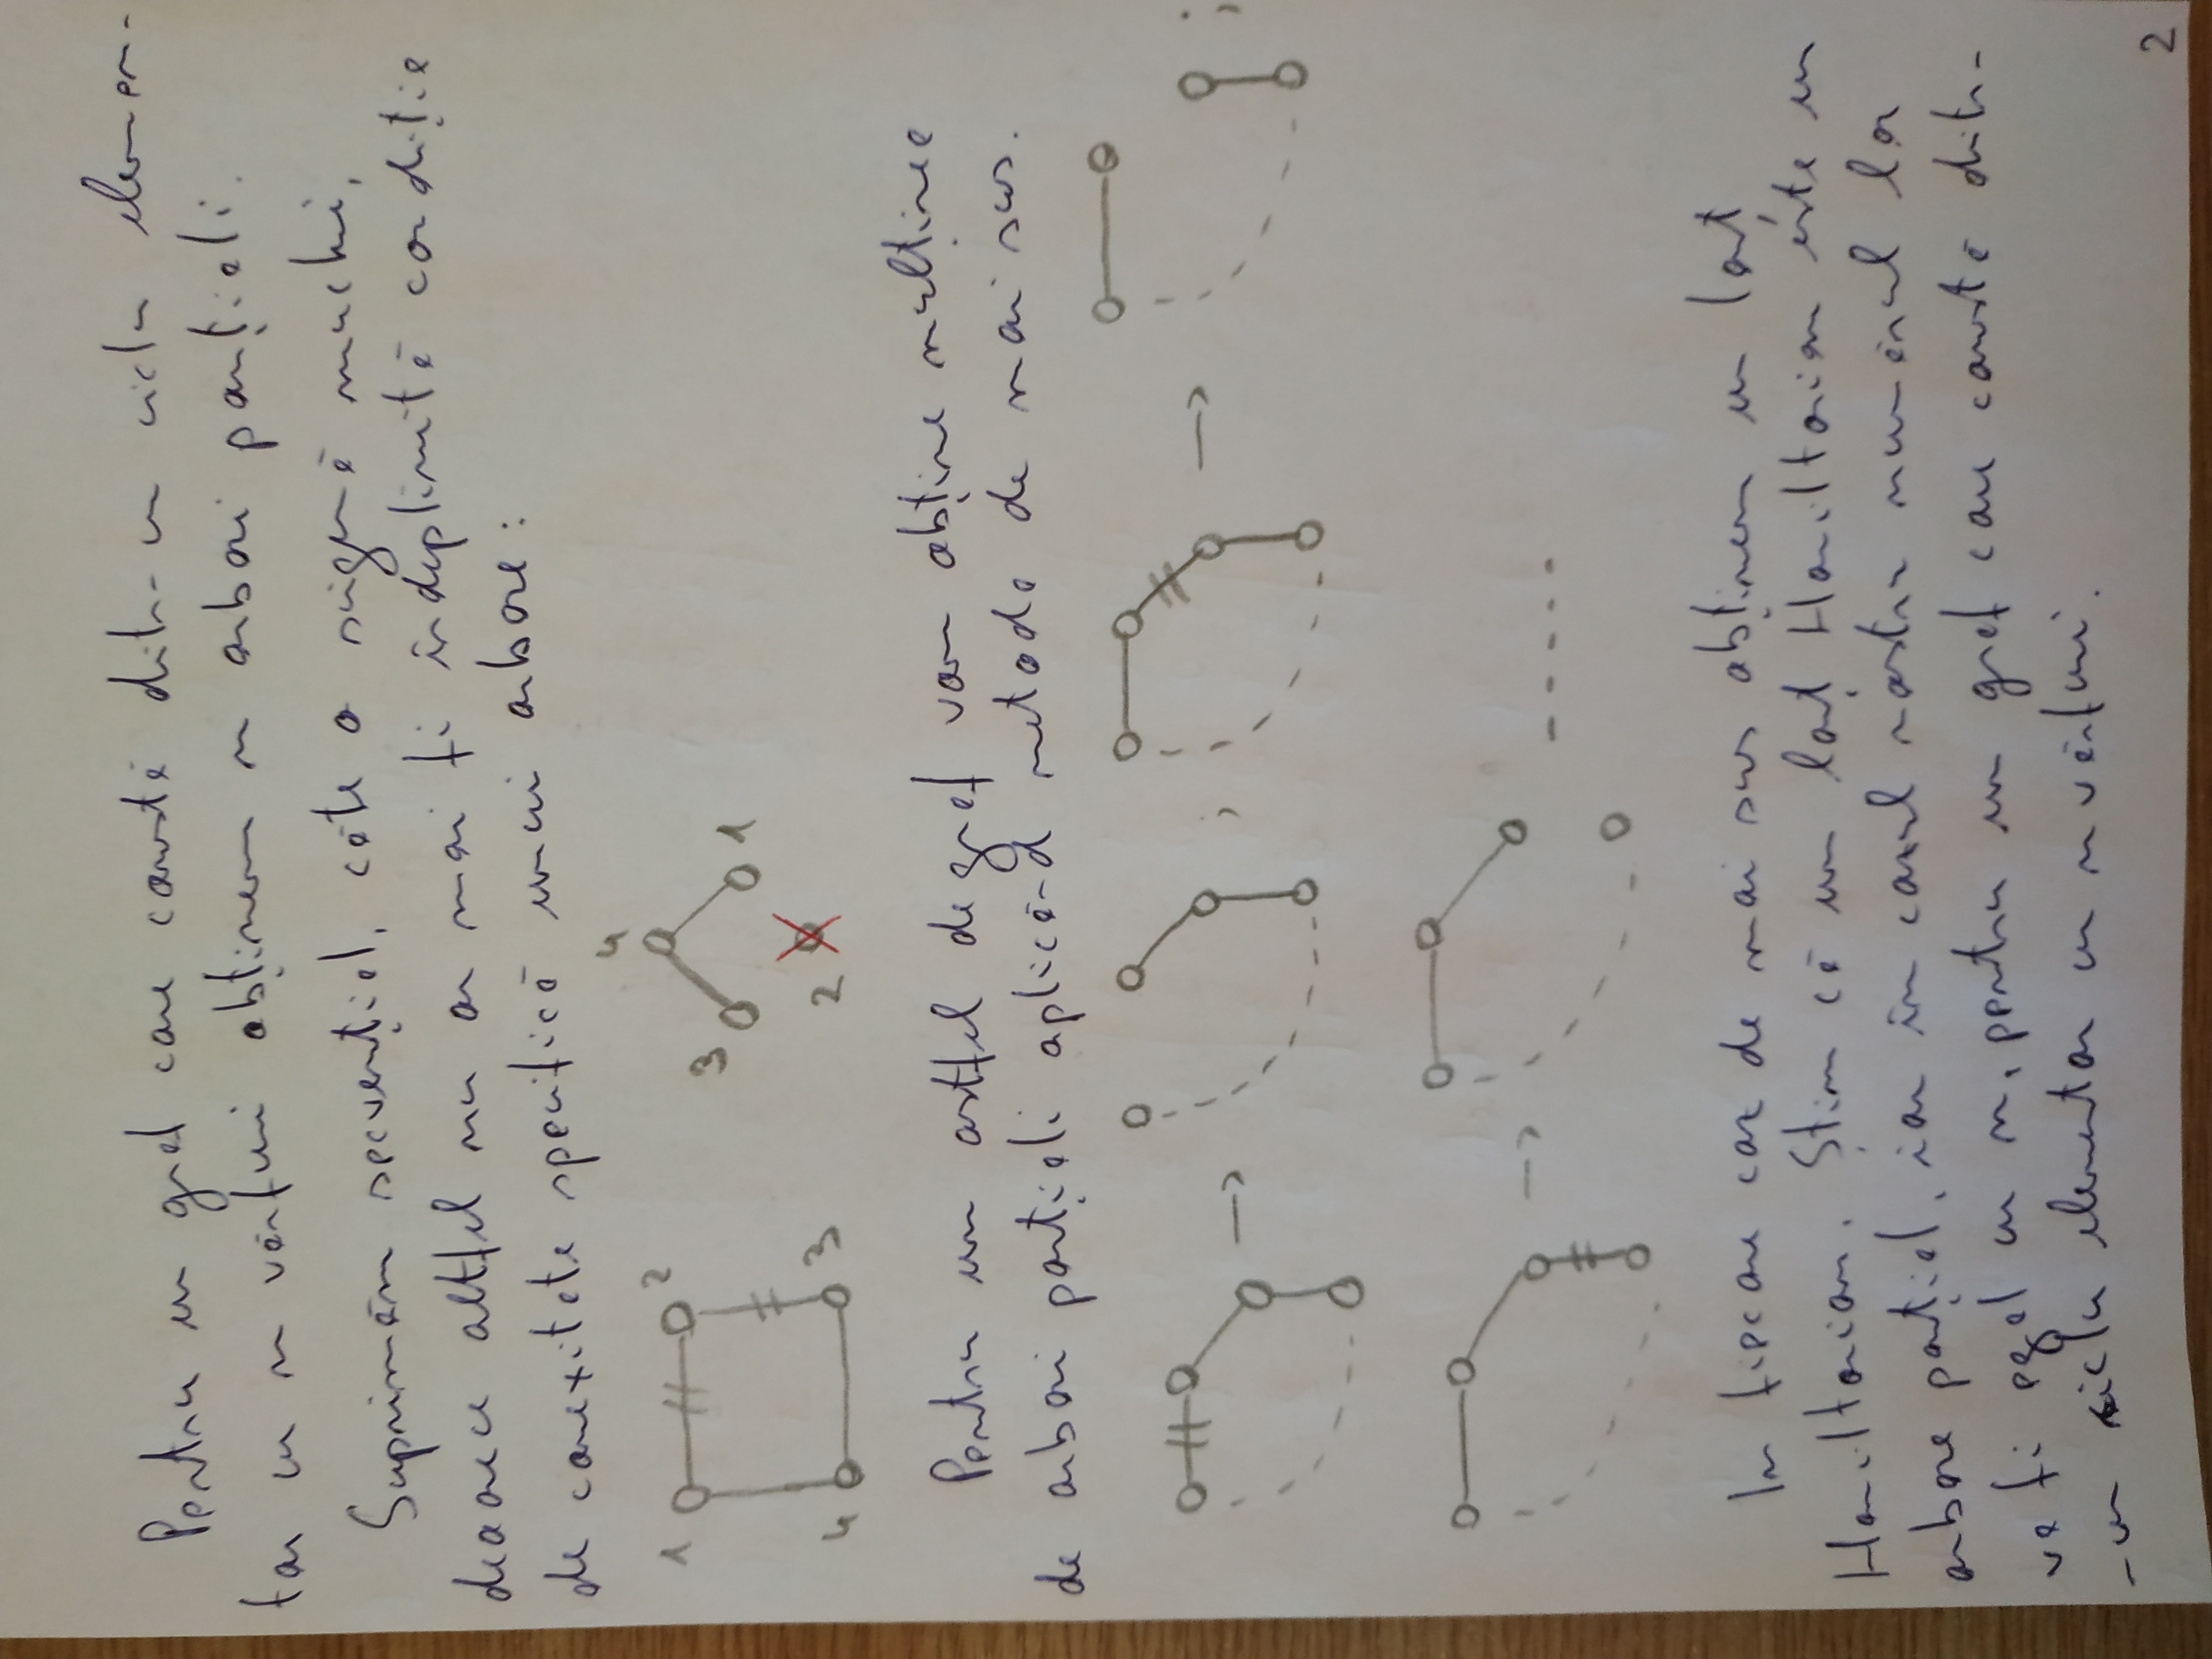 Pentru un graf care constă dintr-un ciclu elemen-
tar cu n vârfuri obținem n arbori parțiali.
Suprimăm secvențial, câte o singură muchie,
deoarece altfel nu ar mai fi îndeplinită condiția
de conexitate specifică unui arbore:
4
1 2
3 1
4 3
2
Pentru un astfel de graf vom obține mulțimea
de arbori parțiali aplicând metoda de mai sus.
; ;
In fiecare caz de mai sus obținem un lanț
Hamiltonian. Știm că un lanț Hamiltonian este un
arbore parțial, iar în cazul nostru numărul lor
va fi egal cu n, pentru un graf care constă dintr-
-un ciclu elementar cu n vârfuri.
2